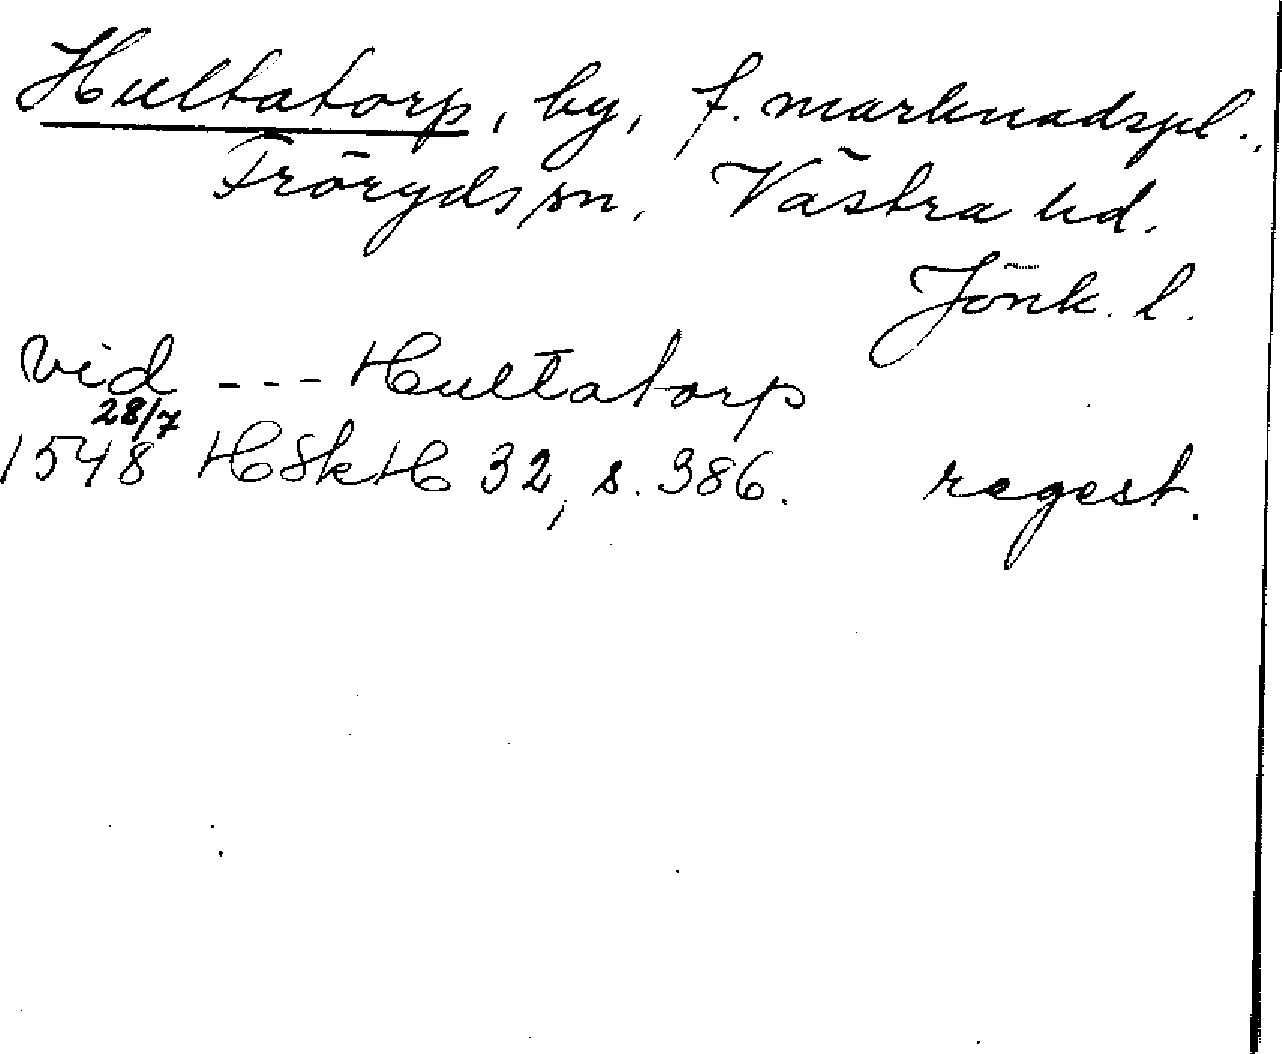 Hultatorp, by, f. marknadspl.,
Fröryds sn, Västra hd.
Jönk. l.
vid --- Hultatorp
28/7
1548 HSkH 32, s. 386. regest.